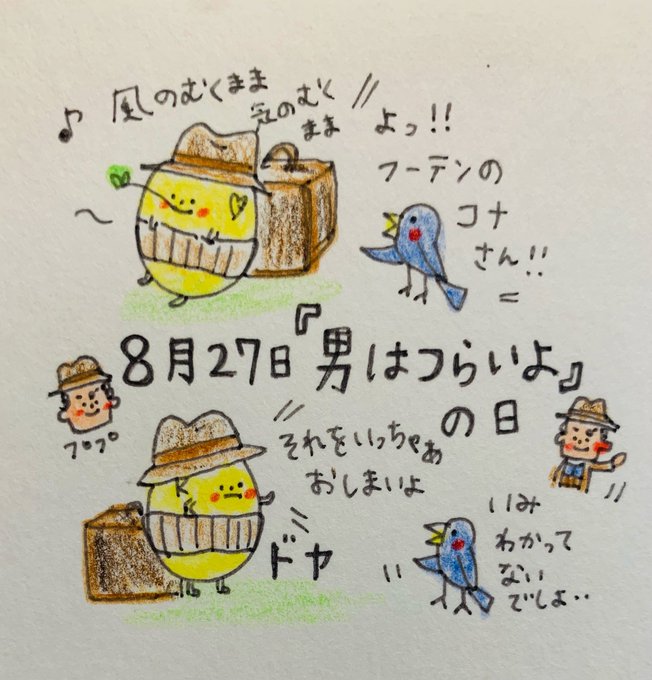 ♪ 風のむくまま
気のむく
まま
よっ!!
フーテンの
コナ
さん!!
8月27日『男はつらいよ』
の日
プププ
それをいっちゃぁ
おしまいよ
ドヤ
いみ
わかって
ない
でしょ‥